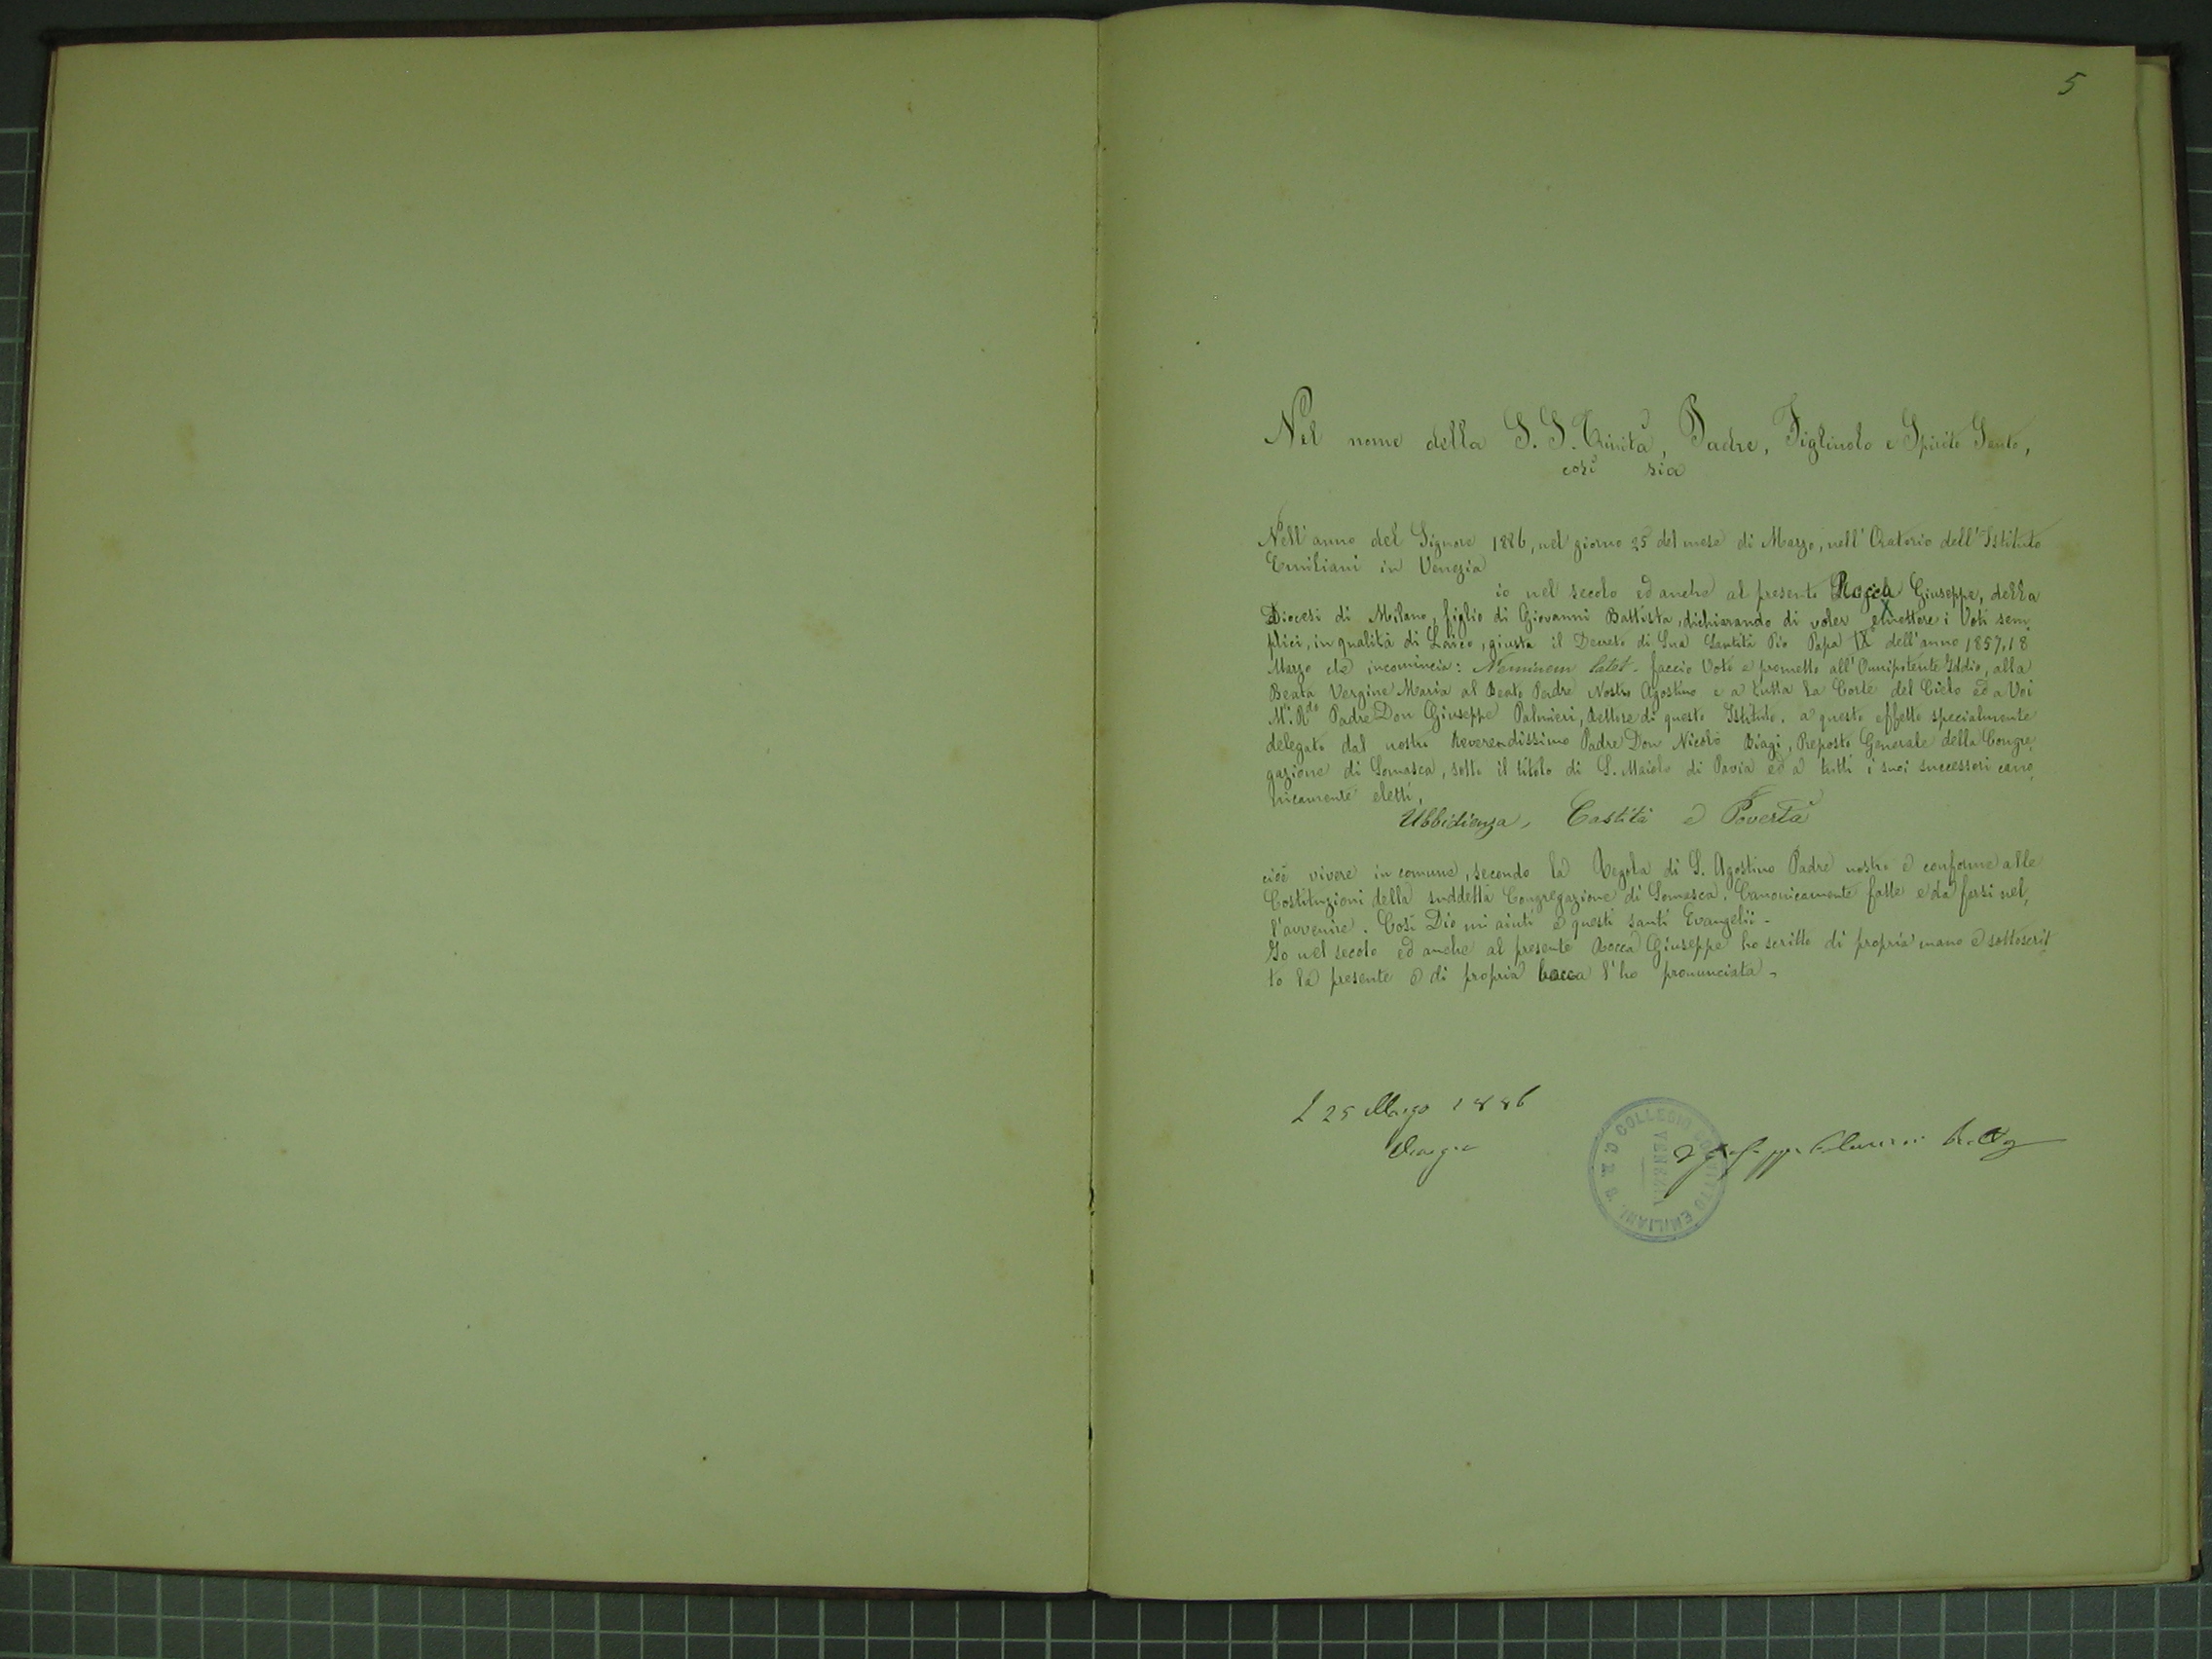 5
Nel nome della S. S. Trinità, Padre, Figliuolo e Spirito Santo,
così sia
Nell'anno del Signore 1886, nel giorno 25 del mese di Marzo, nell'Oratorio dell'Istituto
Emiliani in Venezia
io nel secolo ed anche al presente Rocca Giuseppe, della
Diocesi di Milano, figlio di Giovanni Battista, dichiarando di voler emettere i Voti sem-
plici, in qualità di Laico, giusta il Decreto di Sua Santità Pio Papa IX dell'anno 1857, 18
Marzo che incomincia: Neminem latet. faccio Voto e prometto all'Onnipotente Iddio, alla
Beata Vergine Maria al Beato Padre Nostro Agostino e a tutta la Corte del Cielo ed a Voi
M.º R.do Padre Don Giuseppe Palmieri, Rettore di questo Istituto, a questo effetto specialmente
delegato dal nostro Reverendissimo Padre Don Nicolò Biagi, Preposto Generale della Congre-
gazione di Somasca, sotto il titolo di S. Maiolo di Pavia ed a tutti i suoi successori cano-
nicamente eletti,
Ubbidienza, Castità e Povertà
cioè vivere in comune, secondo la Regola di S. Agostino Padre nostro e conforme alle
Costituzioni della suddetta Congregazione di Somasca, Canonicamente fatte e da farsi nel-
l'avvenire. Così Dio mi aiuti e questi santi Evangelii -
Io nel secolo ed anche al presente Rocca Giuseppe ho scritto di propria mano e sottoscrit-
to la presente e di propria bocca l'ho pronunciata -
25 Marzo 1886
COLLEGIO CONVITTO EMILIANI
VENEZIA